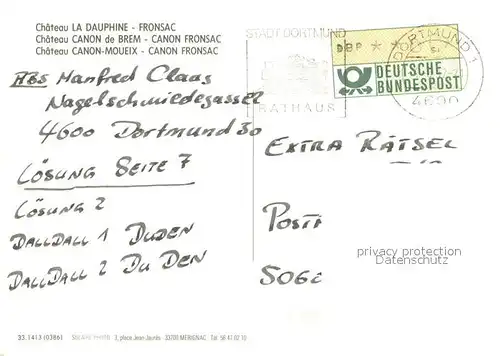 Château LA DAUPHINE - FRONSAC
Château CANON de BREM - CANON FRONSAC
Château CANON-MOUEIX - CANON FRONSAC
Abs Manfred Claas
Nagelschmiedegasse
4600 Dortmund 30
LÖSUNG SEITE 7
LÖSUNG 2
DALLDALL 1 DUDEN
DALLDALL 2 DUDEN
STADT DORTMUND
RATHAUS
DBP
DEUTSCHE
BUNDESPOST
DORTMUND 1
4600
EXTRA RÄTSEL
POSTF
privacy protection
Datenschutz
33.1413 (0386)
3, place Jean-Jaurès 33700 MERIGNAC Tel. 56 47 02 10